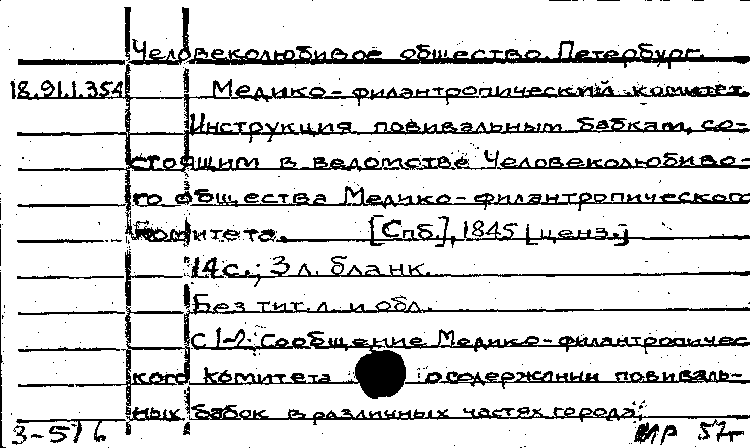 Человеколюбивое общество. Петербург.
18.91.1.354 Медико-филантропический комитет.
Инструкция повивальным бабкам, со-
стоящим в ведомстве Человеколюбиво-
го общества Медико-филантропического
комитета. [Спб], 1845 [ценз.]
14 с.; 3 л. бланк.
Без тит. л. и обл.
С 1-2: Сообщение Медико-филантропичес
кого комитета о содержании повиваль-
ных бабок в различных частях города;
3-57